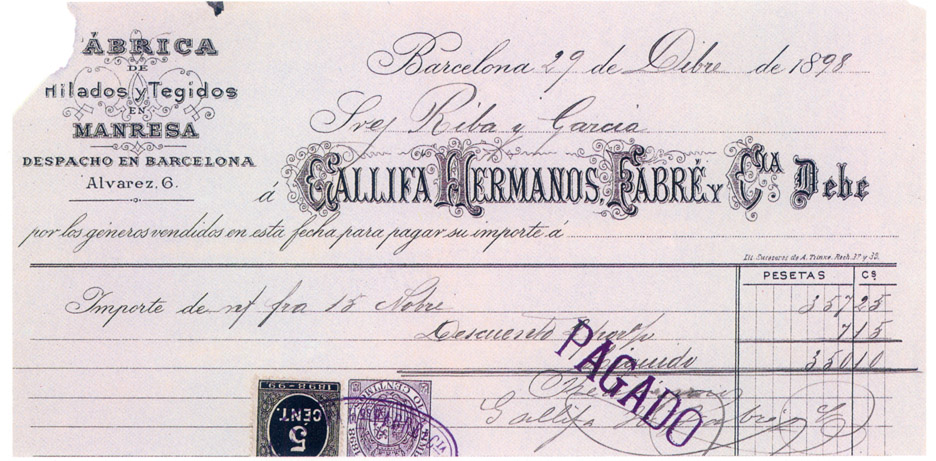 FÁBRICA
DE
Hilados y Tegidos
EN
MANRESA
DESPACHO EN BARCELONA
Alvarez, 6.
Barcelona 29 de Dibre de 1898
Sres Riba y Garcia
á GALLIFA HERMANOS, FABRÉ Y Cía Debe
por los géneros vendidos en esta fecha para pagar su importe á
Lit. Sucesores de A. Trinxe. Rech. 37 y 39.
PESETAS Cs
Importe de n/ fra 15 Nobre 357 25
Descuento 2 por % 7 15
Líquido 350 10
PAGADO
Gallifa
1898-99
5
CENT.
10 CENTIMOS